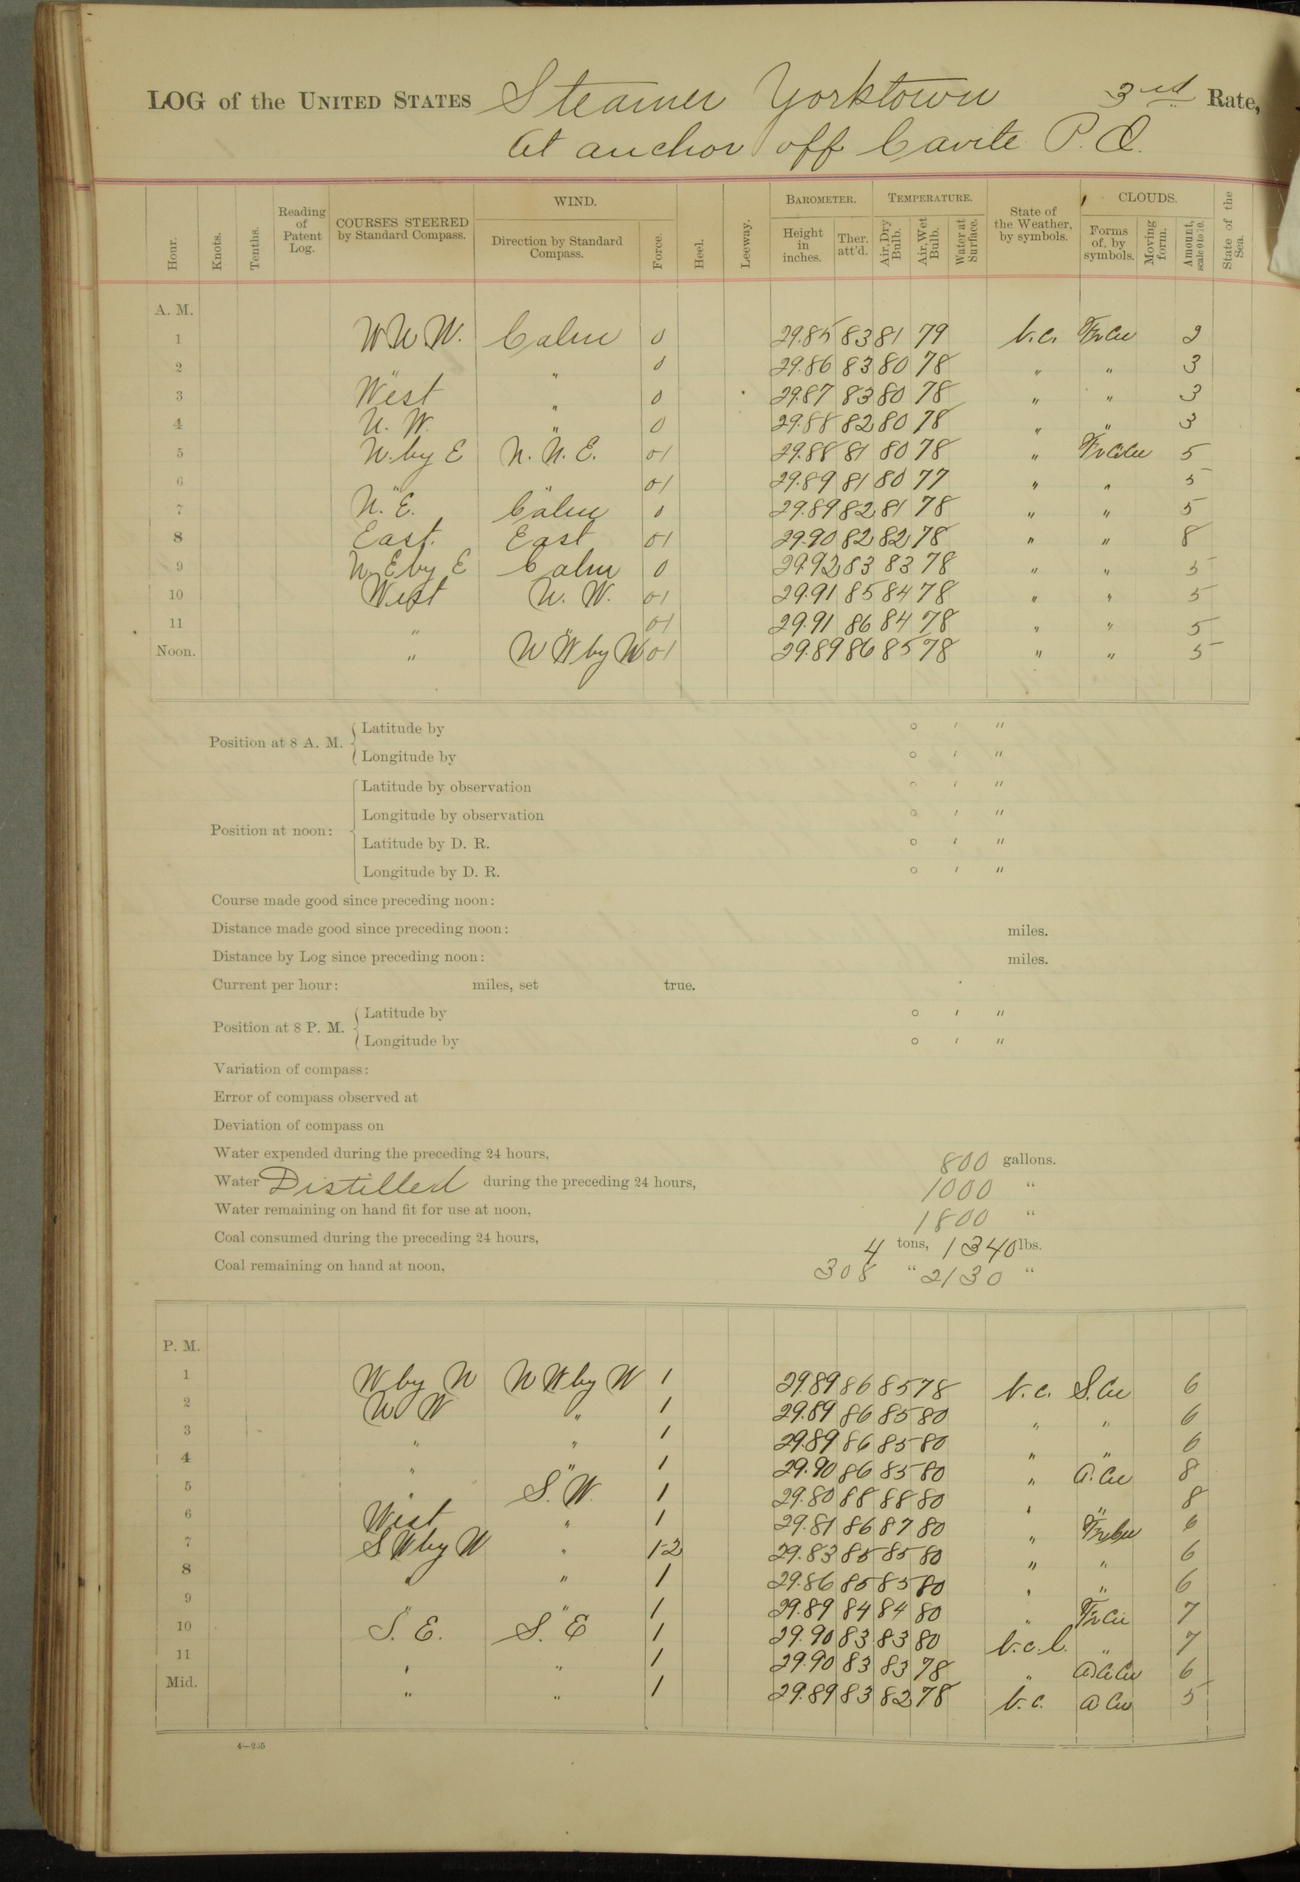 LOG of the UNITED STATES Steamer Yorktown 3rd Rate,
At anchor off Cavite P.I.
Hour. Knots. Tenths. Reading of Patent Log. COURSES STEERED by Standard Compass. WIND. Direction by Standard Compass. Force. Heel. Leeway. BAROMETER. Height in inches. Ther. att'd. TEMPERATURE. Air, Dry Bulb. Air, Wet Bulb. Water at Surface. State of the Weather, by symbols. CLOUDS. Forms of, by symbols. Moving form. Amount, scale 0 to 10. State of the Sea.
A. M.
1 WNW. Calm 0 29.85 83 81 79 b.c. Fr Cu 2
2 " " 0 29.86 83 80 78 " " 3
3 West " 0 29.87 83 80 78 " " 3
4 N. W. " 0 29.88 82 80 78 " " 3
5 N. by E N. N. E. 01 29.88 81 80 78 " 5
6 " " 01 29.89 81 80 77 " " 5
7 N. E. Calm 0 29.89 82 81 78 " " 5
8 East. East 01 29.90 82 82 78 " " 8
9 N. E by E Calm 0 29.92 83 83 78 " " 5
10 West N. W. 01 29.91 85 84 78 " " 5
11 " " 01 29.91 86 84 78 " " 5
Noon. " N W by W 01 29.89 86 85 78 " " 5
Position at 8 A. M. Latitude by ° ′ ″
Longitude by ° ′ ″
Position at noon: Latitude by observation ° ′ ″
Longitude by observation ° ′ ″
Latitude by D. R. ° ′ ″
Longitude by D. R. ° ′ ″
Course made good since preceding noon:
Distance made good since preceding noon: miles.
Distance by Log since preceding noon: miles.
Current per hour: miles, set true.
Position at 8 P. M. Latitude by ° ′ ″
Longitude by ° ′ ″
Variation of compass:
Error of compass observed at
Deviation of compass on
Water expended during the preceding 24 hours, 800 gallons.
Water Distilled during the preceding 24 hours, 1000 "
Water remaining on hand fit for use at noon, 1800 "
Coal consumed during the preceding 24 hours, 4 tons, 1340 lbs.
Coal remaining on hand at noon, 308 " 2130 "
P. M.
1 W by N N W by W 1 29.89 86 85 78 b.c. S. Cu 6
2 N W " 1 29.89 86 85 80 " " 6
3 " " 1 29.89 86 85 80 " " 6
4 " " 1 29.90 86 85 80 " A. Cu 8
5 " S. W. 1 29.80 88 88 80 " " 8
6 West " 1 29.81 86 87 80 " Fr Cu 6
7 S W by W " 1-2 29.83 85 85 80 " " 6
8 " " 1 29.86 85 85 80 " " 6
9 " " 1 29.89 84 84 80 " Fr Cu 7
10 S. E. S. E 1 29.90 83 83 80 b.c.l. " 7
11 " " 1 29.90 83 83 78 " 6
Mid. " " 1 29.89 83 82 78 b.c. A Cu 5
4—255